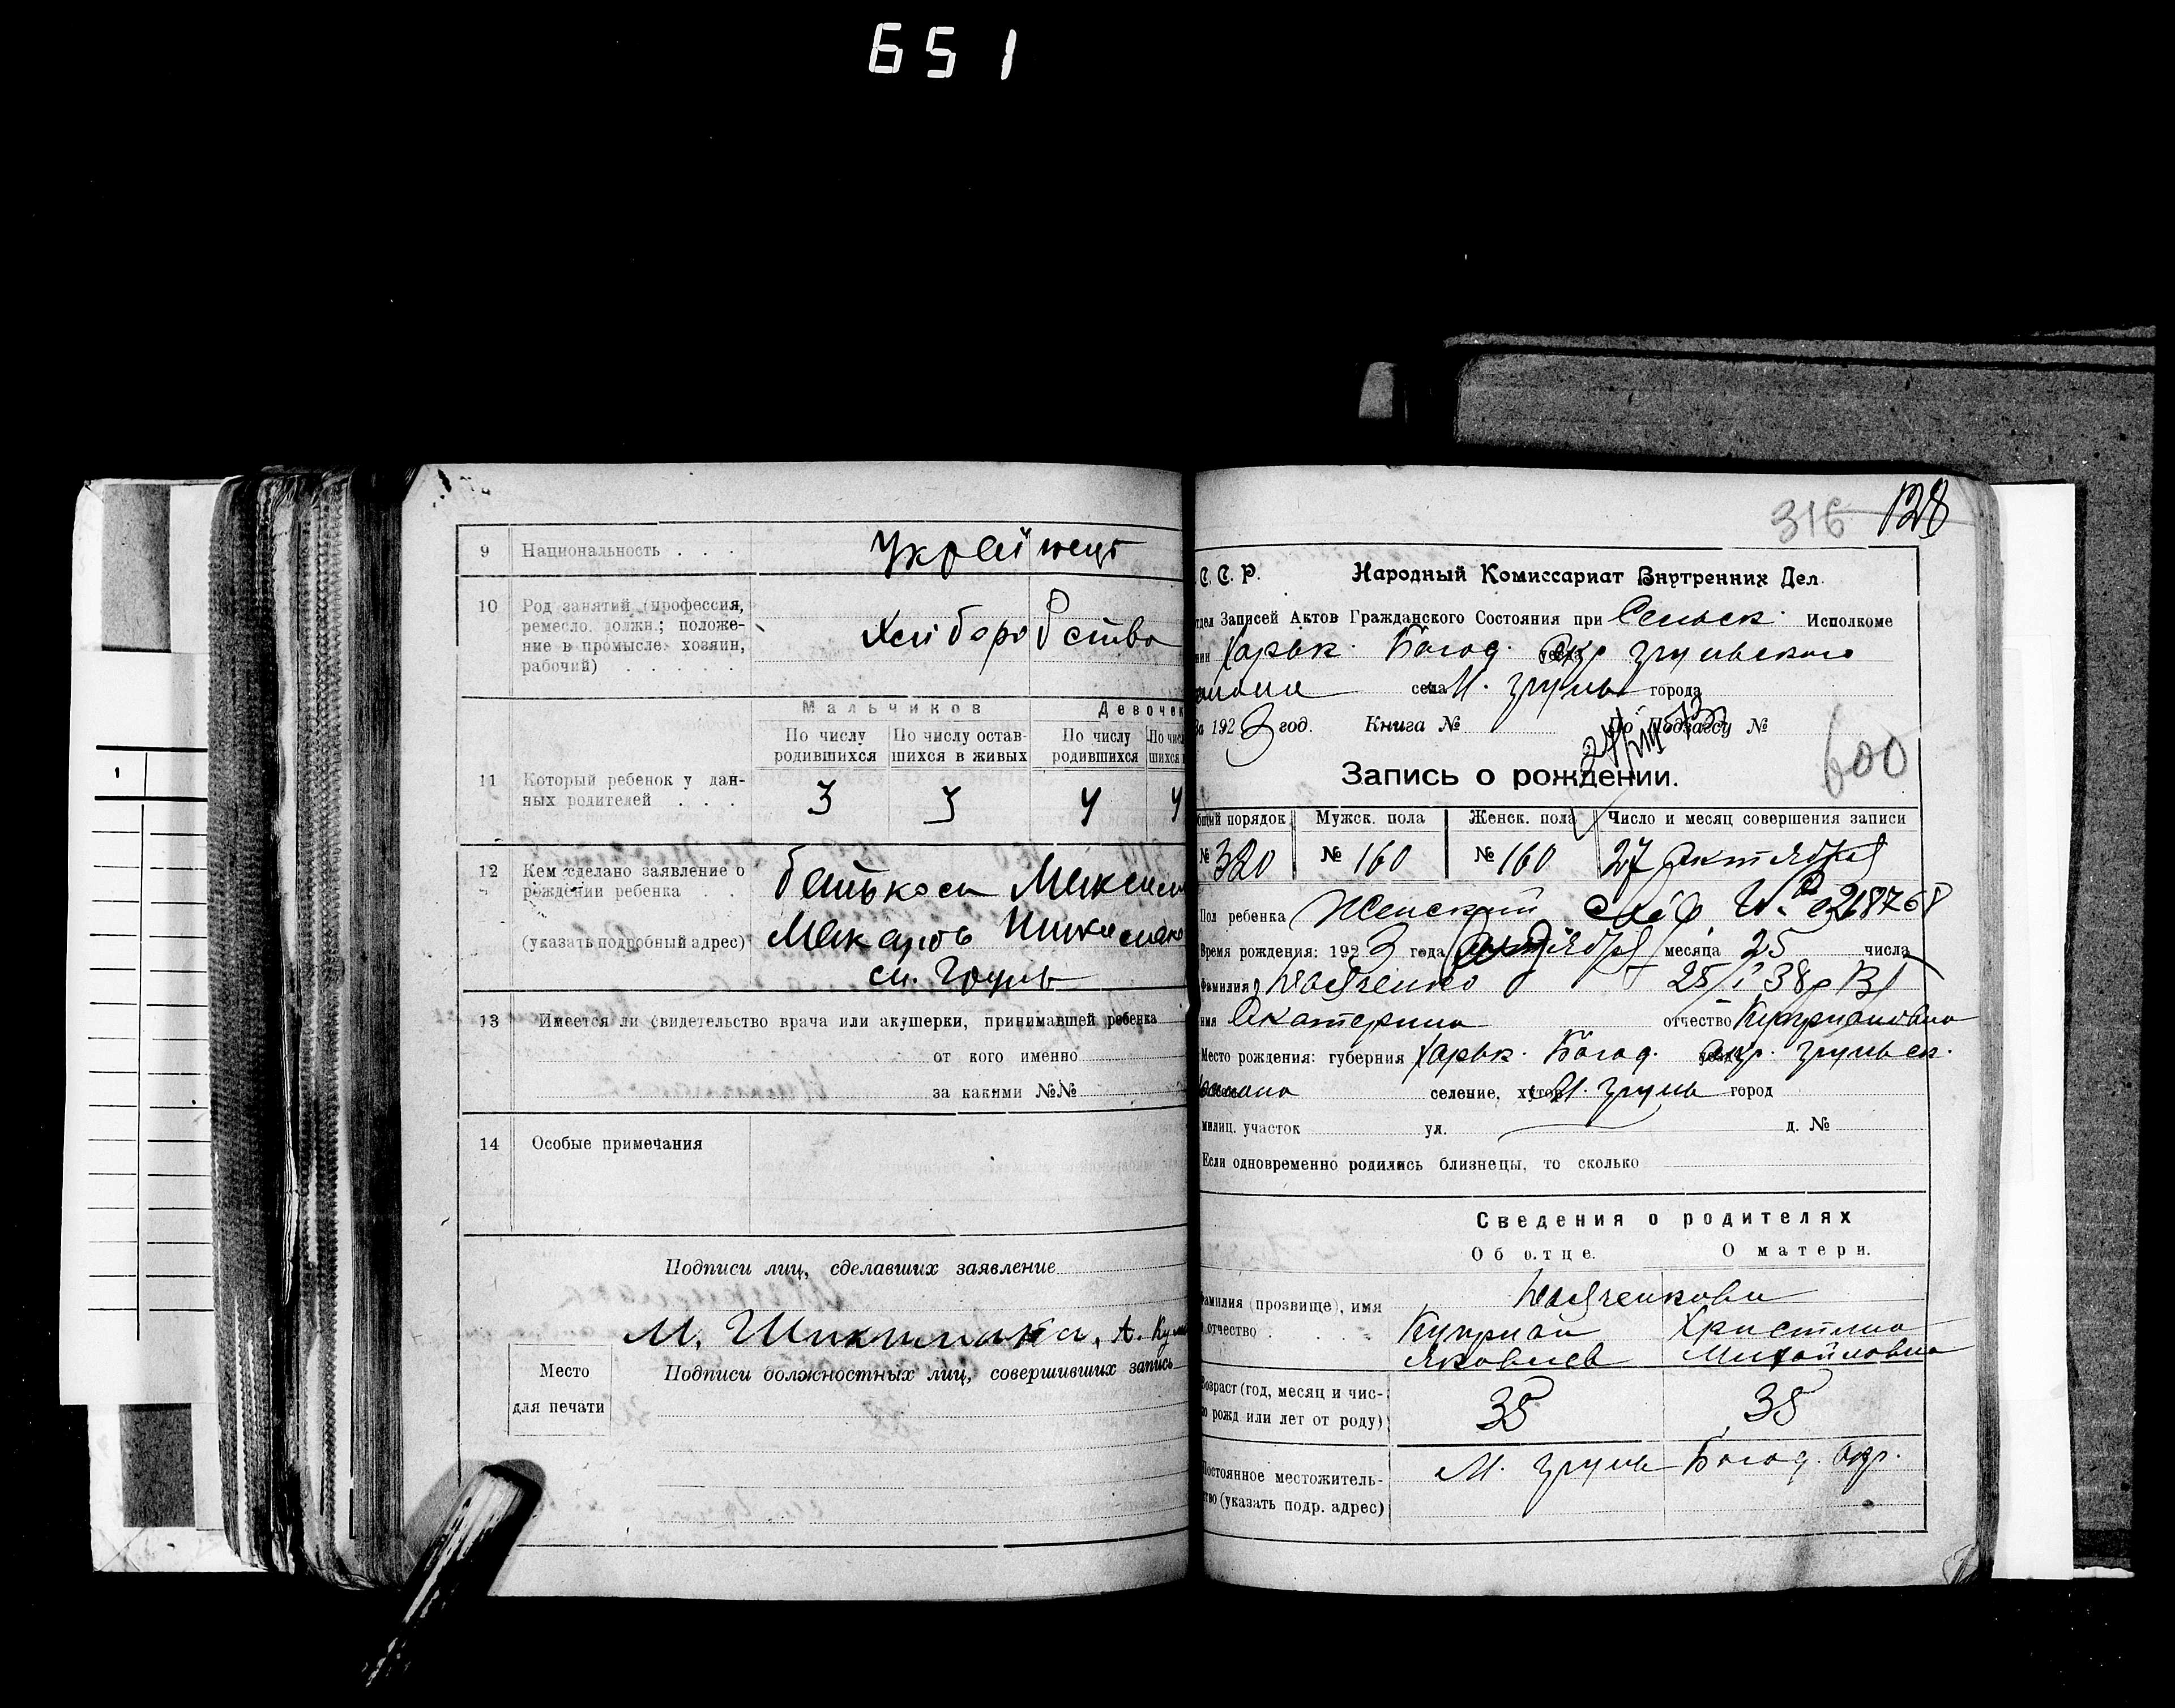 651
9 Национальность . . . Украї нець
10 Род занятий (профессия,
ремесло, должн.; положе-
ние в промысле: хозяин,
рабочий) . . . . . .
Хліборобство
Мальчиков Девочек
По числу родившихся По числу остав-шихся в живых По числу родившихся
11 Который ребенок у дан-
ных родителей . . .
3 3 4 4
12 Кем сделано заявление о
рождении ребенка . .
батьком Максим
(указать подробный адрес)
сл. Грунь
13 Имеется ли свидетельство врача или акушерки, принимавшей ребенка
от кого именно
за какими №№
14 Особые примечания
Подписи лиц, сделавших заявление
М.
Место
для печати
Подписи должностных лиц, совершивших запись
316 128
С. С. Р. Народный Комиссариат Внутренних Дел.
Записей Актов Гражданского Состояния при Сельск. Исполкоме
Харьк. Богод. окр Грунського
села М. Грунь города
1923 год. Книга № По Подзагсу №
600
Запись о рождении.
порядок Мужск. пола Женск. пола Число и месяц совершения записи
№ 320 № 160 № 160 27 Октября
Пол ребенка Женский
Время рождения: 1923 года октября месяца 25 числа
Фамилия
имя Екатерина отчество Куприановна
Место рождения: губерния Харьк. Богод. окр. Грунськ.
селение, хутор М. Грунь город
милиц. участок ул. д. №
Если одновременно родились близнецы, то сколько
Сведения о родителях
Об отце. О матери.
Фамилия (прозвище), имя
отчество . . . .
Куприан Христина
Яковлев Михайловна
Возраст (год, месяц и чис-
рожд или лет от роду)
38 38
Постоянное местожитель-
ство (указать подр. адрес)
М. Грунь Богод. окр.